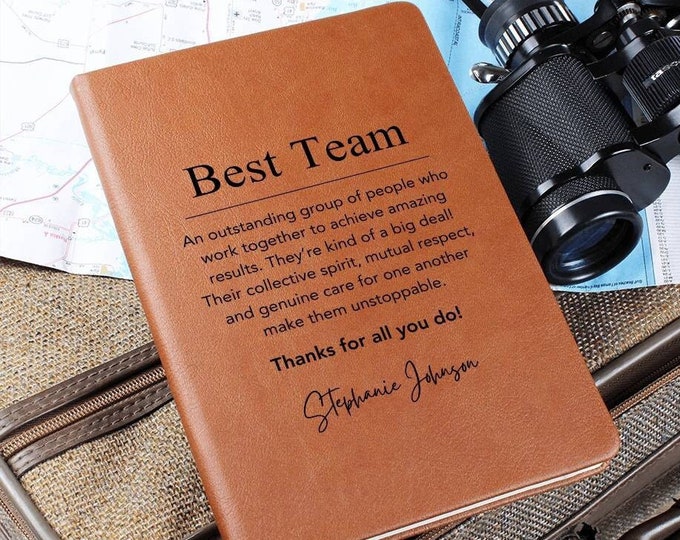 Best Team
An outstanding group of people who
work together to achieve amazing
results. They're kind of a big deal!
Their collective spirit, mutual respect,
and genuine care for one another
make them unstoppable.
Thanks for all you do!
Stephanie Johnson